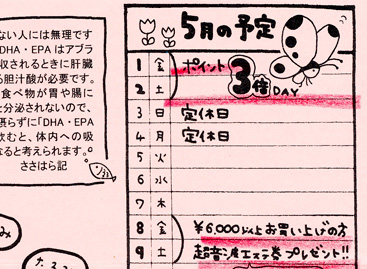 ない人には無理です
DHA・EPAはアブラ
収されるときに肝臓
る胆汁酸が必要です。
食べ物が胃や腸に
と分泌されないので、
摂らずに「DHA・EPA
飲むと、体内への吸
なると考えられます。
ささはら記
5月の予定
1 金 ポイント 3倍DAY
2 土
3 日 定休日
4 月 定休日
5 火
6 水
7 木
8 金 ¥6,000以上お買い上げの方
9 土 超音波エステ券プレゼント!!